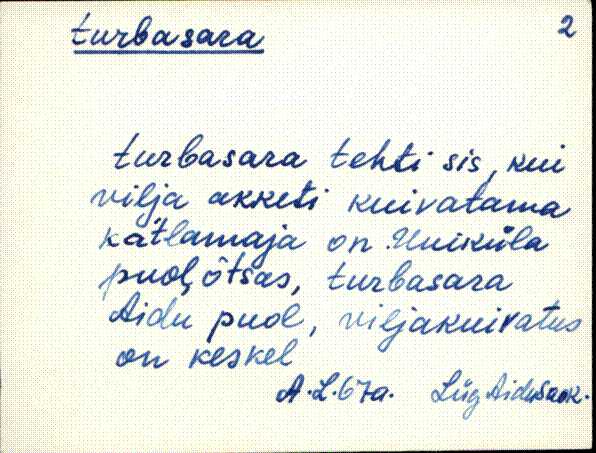 turbasara 2
turbasara tehti sis, kui
vilja akketi kuivatama
katlamaja on Uniküla
puol õtsas, turbasara
Aidu puol, viljakuivatus
on keskel
A.L.67a. Lüg Aidu